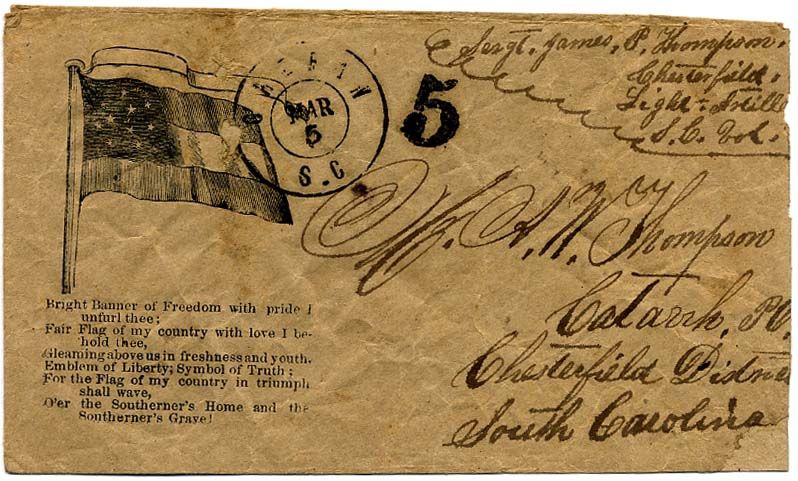 Sergt. James, P. Thompson.
Chesterfield.
Light-Artill
S.C. Vol.
MAR
5
S.C
5
Mr. A. W. Thompson
Catarrh, P.O.
Chesterfield
South Carolina
Bright Banner of Freedom with pride I
unfurl thee;
Fair Flag of my country with love I be-
hold thee,
Gleaming above us in freshness and youth,
Emblem of Liberty; Symbol of Truth;
For the Flag of my country in triumph
shall wave,
O'er the Southerner's Home and the
Southerner's Grave!